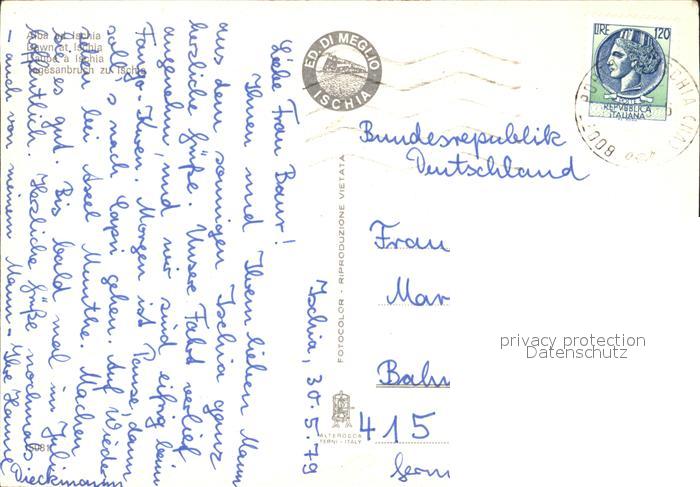 Alba ad Ischia
Dawn at Ischia
Tagesanbruch zu Ischia
ED. DI MEGLIO
ISCHIA
LIRE 120
POSTE
REPVBBLICA
ITALIANA
Ischia, 30.5.79
Liebe Frau Baur!
Ihnen und Ihrem lieben Mann
aus dem sonnigen Ischia ganz
herzliche Grüße. Unsere Fahrt verlief
angenehm, und wir sind eifrig beim
Fango-Kuren. Morgen ist Pause, dann
soll's nach Capri gehen. Auf Wieder-
sehen bei Axel Munthe. Machen
Sie es gut. Bis bald mal im Juli
hoffentlich. Herzliche Grüße nochmals
- auch von meinem Mann - Ihre Hanne
Dieckmann
Bundesrepublik
Deutschland
Frau
Mar
Bahn
415
FOTOCOLOR - RIPRODUZIONE VIETATA
ALTEROCCA
TERNI - ITALY
privacy protection
Datenschutz